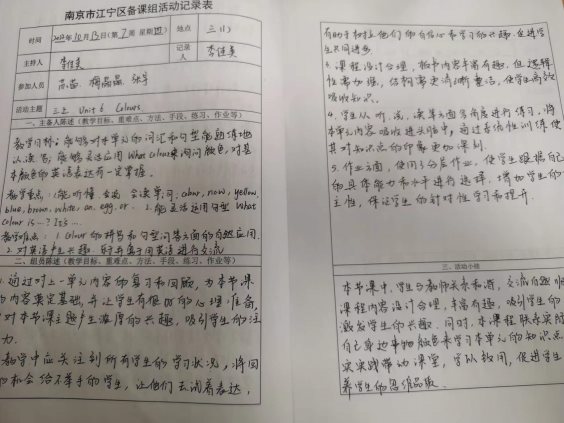 南京市江宁区备课组活动记录表
时间
2022年10月13日(第7周 星期四)
地点
三(1)
主持人
李佳美
记录人
李佳美
参加人员
活动主题
三上 Unit 6 Colours.
一、主备人陈述(教学目标、重难点、方法、手段、练习、作业等)
教学目标:能够对本单元的词汇和句型能熟练地
认读写;能够灵活运用What colour来询问颜色,对基
本颜色的英语表达有一定掌握。
教学重点:1.能听懂 会说 会读单词:colour, now, yellow,
blue, brown, white, an, egg, or. 2.能灵活运用句型 What
colour is ...? It's ...
教学难点:1. colour的拼写和句型问答方面的自然应用.
2. 对英语产生兴趣,乐于并善于用英语进行交流
二、组员陈述(教学目标、重难点、方法、手段、练习、作业等)
1.通过对上一单元内容的复习和回顾,为本节课
内容奠定基础,并让学生有很好的心理准备,
对本节课主题产生浓厚的兴趣,吸引学生的注
力.
教学中应关注到所有学生的学习状况,将回
机会给不举手的学生,让他们去试着表达,
有助于树立他们的自信心和学习的兴趣.但进学
生共同进步
3.课程设计合理,板书内容丰富有趣,但逻辑
性需加强,结构需更清晰整洁,使学生高效
吸收知识.
4.学生从听、说、读单方面多角度进行练习,将
本单元内容吸收进头脑中,通过系统性训练使
其对知识点的印象更加深刻.
5.作业方面,使用了分层作业,使学生跟据自己
的具体能力和水平进行选择,增加学生的
主性,保证学生的针对性学习和提升.
三、活动小结
本节课中,学生与教师关系和谐,交流自趣
课程内容设计合理,丰富有趣,吸引学生的
激发学生的兴趣.同时,本课程联系实际
自己身边事物颜色来学习本单元的知识点
实实践带动课堂,学以致用,促进学生
养学生的思维品质.